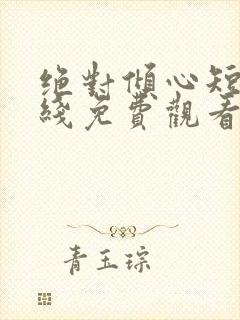 絶對傾心短
綫免費觀看
青玉琮